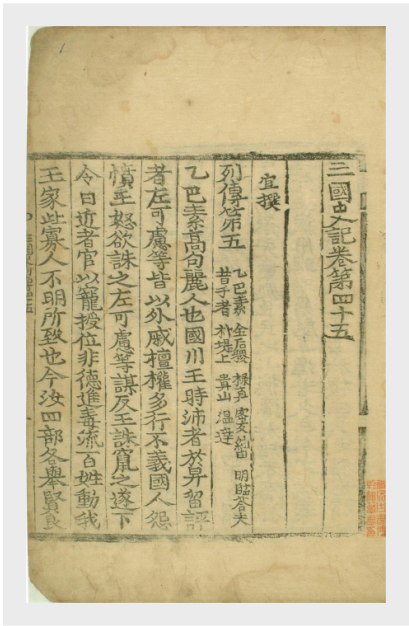 三國史記卷第四十五
宜撰
列傳第五 乙巴素 金后稷 祿眞 密友紐由 明臨荅夫
昔于老 朴堤上 貴山 溫達
乙巴素高句麗人也國川王時沛者於畀留評
者左可慮等皆以外戚擅權多行不義國人怨
憤王怒欲誅之左可慮等謀反王誅竄之遂下
令曰近者官以寵授位非德進毒流百姓動我
王家此寡人不明所致也今汝四部各舉賢良